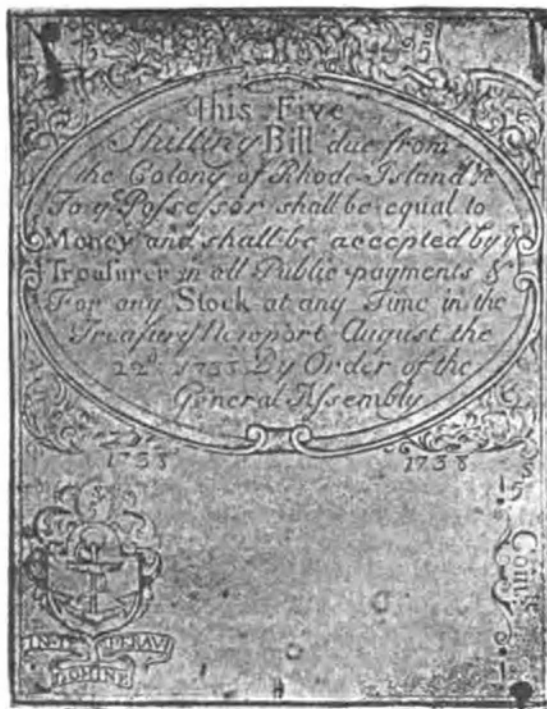 This Five
Shilling Bill due from
the Colony of Rhode-Island &c
To yᵉ Poſseſsor shall be equal to
Money and shall be accepted by yᵉ
Treaſurer in all Public payments &
For any Stock at any Time in the
Treaſury Newport August the
22ᵈ. 1738 By Order of the
General Aſsembly
1738 1738
S
5
Com:
IN TE SPERAV
DOMINE